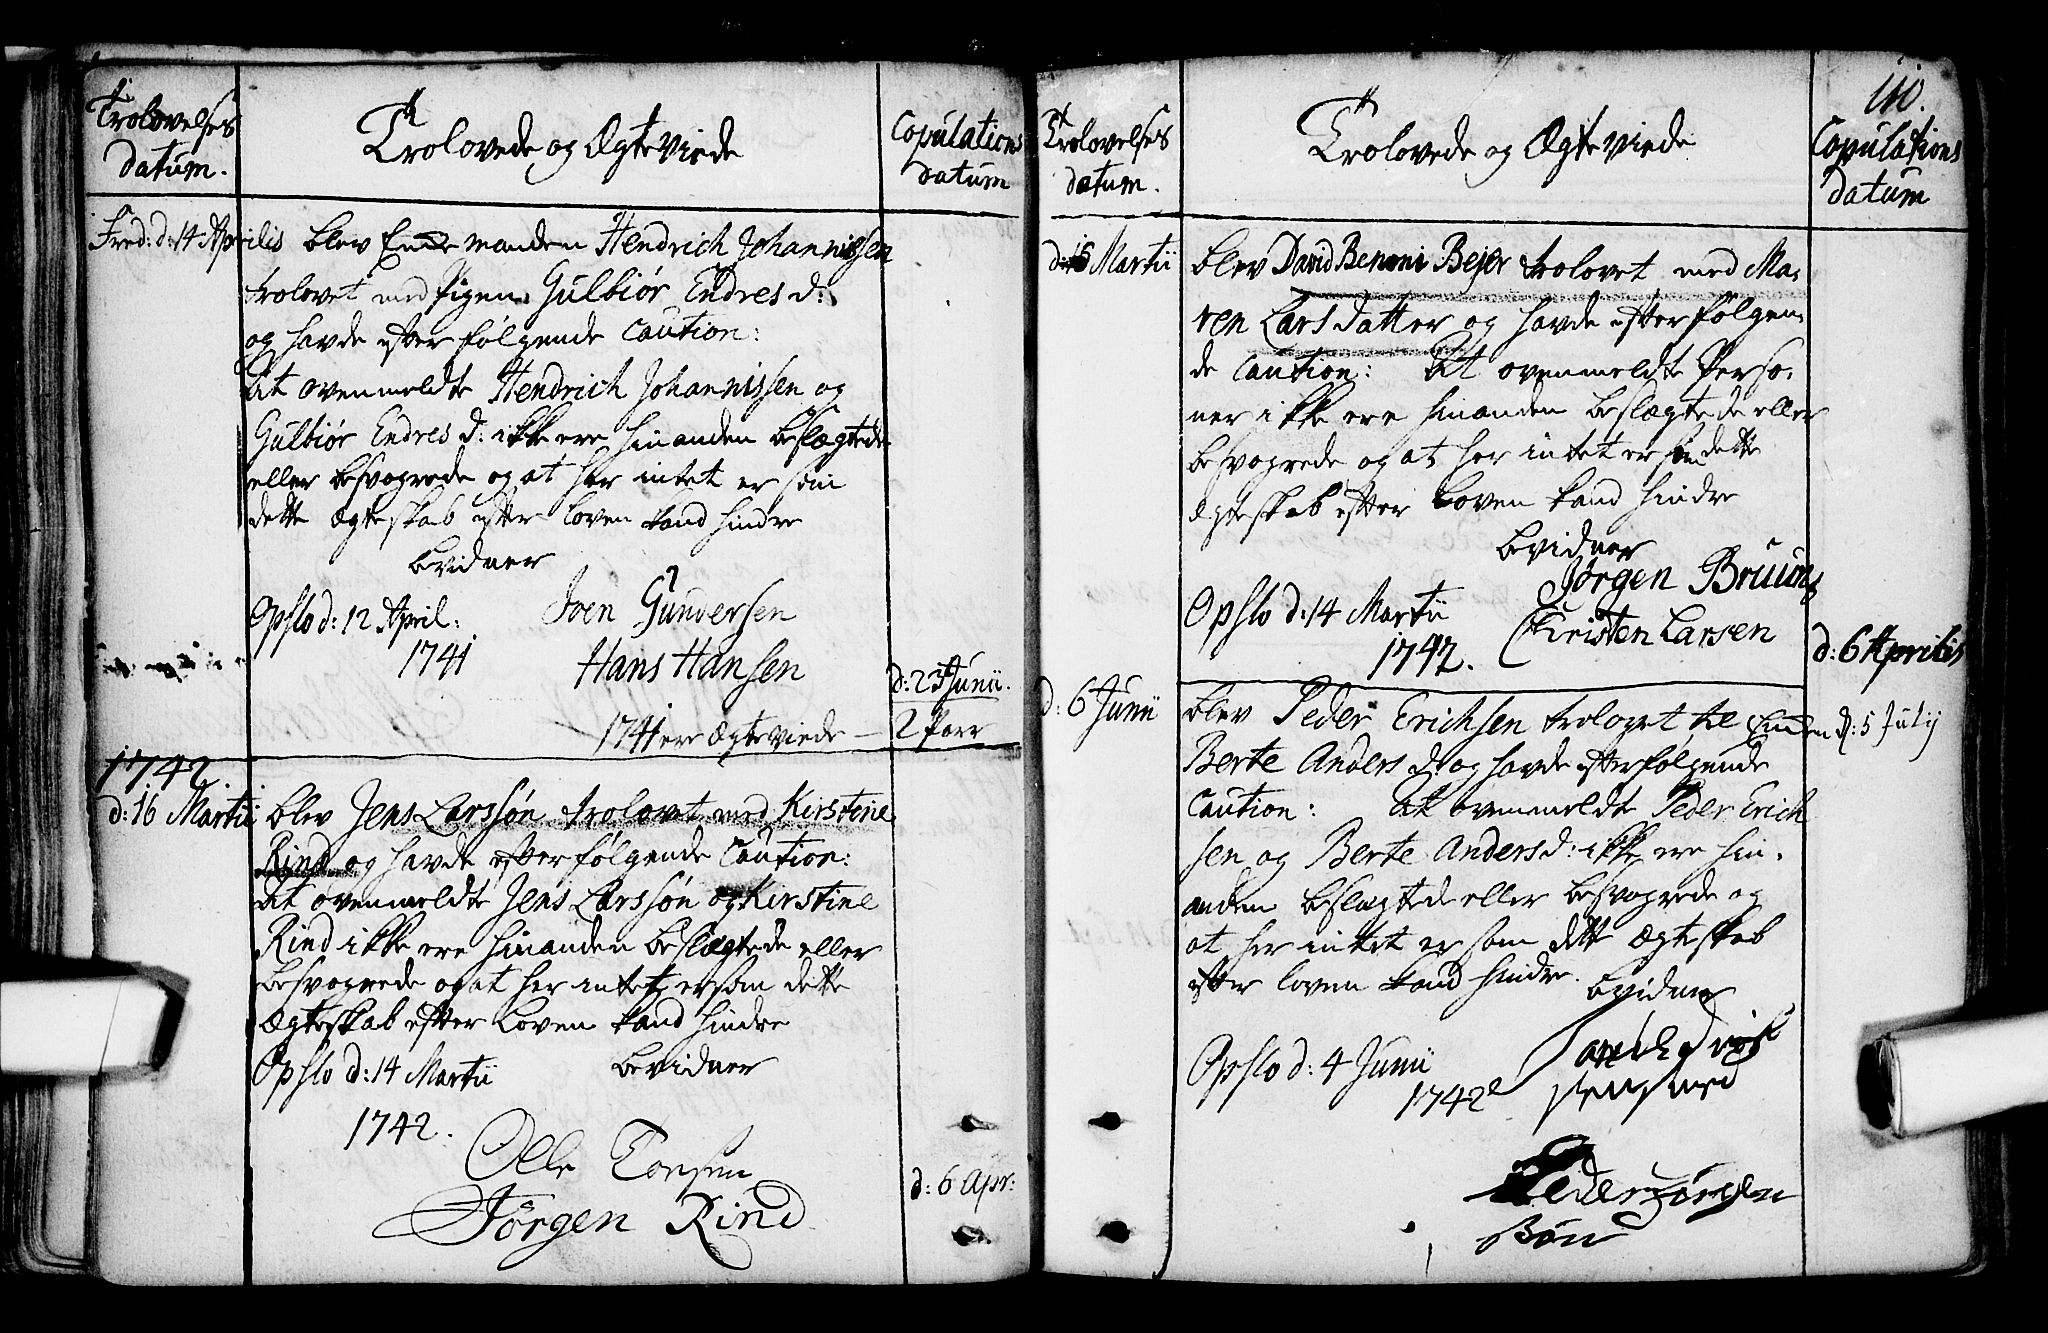 Trolovelses
datum.
Trolovede og Ægteviede
Copulations
datum
Fred: d: 14 Aprilis blev Enke manden Hendrich Johannissen
trolovet med Pigen Gulbiør Endres d:
og havde efterfølgende Caution:
At ovenmeldte Hendrich Johannissen og
Gulbiør Endres d: ikke ere hinanden beslægtede
eller besvogrede og at her intet er som
dette Ægteskab efter Loven kand hindre
bevidner
Opslo d: 12 April:
1741
Joen Gundersen
Hans Hansen
d: 23 Junii.
1741 ere Ægteviede — 2 Parr
1742
d: 16 Martii blev Jens Larssøn trolovet med Kirstine
Rind og havde efterfølgende Caution:
At ovenmeldte Jens Larssøn og Kirstine
Rind ikke ere hinanden beslægtede eller
besvogrede og at her intet er som dette
Ægteskab efter Loven kand hindre
Opslo d: 14 Martii bevidner
1742.
Olle Torsen
Jørgen Rind
d: 6 Apr:
110.
Trolovelses
datum.
Trolovede og Ægteviede
Copulations
datum
d: 15 Martii blev David Benoni Bejer trolovet med Ma-
ren Lars Datter og havde efterfølgen-
de Caution: At ovenmeldte Perso-
ner ikke ere hinanden beslægtede eller
besvogrede og at her intet er som dette
Ægteskab efter Loven kand hindre
bevidner
Jørgen Bruun
Opslo d: 14 Martii
1742.
Christen Larsen
d: 6 Aprilis
d: 6 Junii blev Peder Erichsen trolovet til Enken d: 5 Julij
Berte Anders d: og havde efterfølgende
Caution: At ovenmeldte Peder Erich
sen og Berte Anders d: ikke ere hin-
anden beslægtede eller besvogrede og
at her intet er som dette Ægteskab
efter Loven kand hindre.
bevidner
Opslo d: 4 Junii
1742
Peder Jørgen